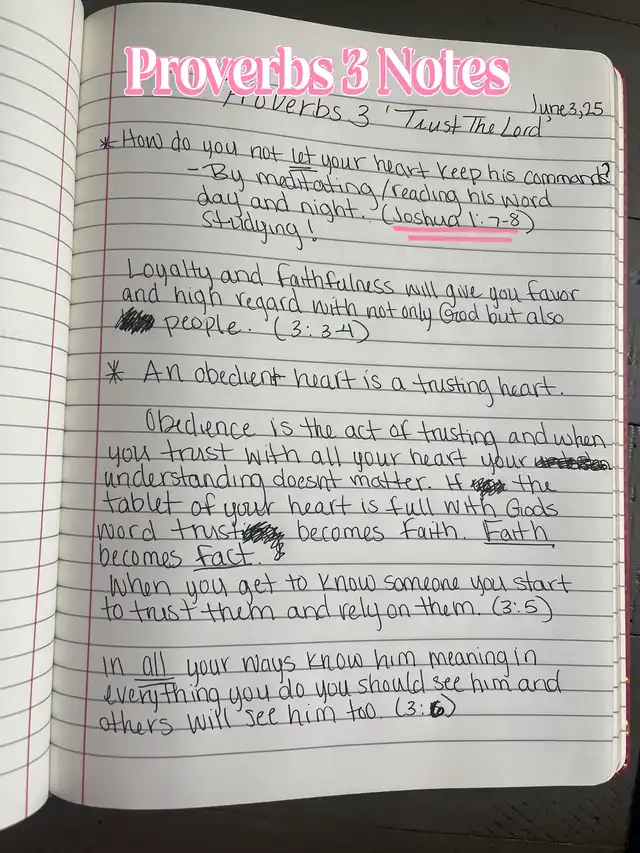 Proverbs 3 Notes
Proverbs 3 'Trust The Lord'
June 3, 25
* How do you not let your heart keep his commands?
- By meditating/reading his word
day and night. (Joshua 1:7-8)
Studying!
Loyalty and faithfulness will give you favor
and high regard with not only God but also
people. (3:3-4)
* An obedient heart is a trusting heart.
Obedience is the act of trusting and when
you trust with all your heart your
understanding doesnt matter. If the
tablet of your heart is full with Gods
word trust becomes faith. Faith
becomes fact.
When you get to know someone you start
to trust them and rely on them. (3:5)
In all your ways know him meaning in
everything you do you should see him and
others will see him too. (3:6)